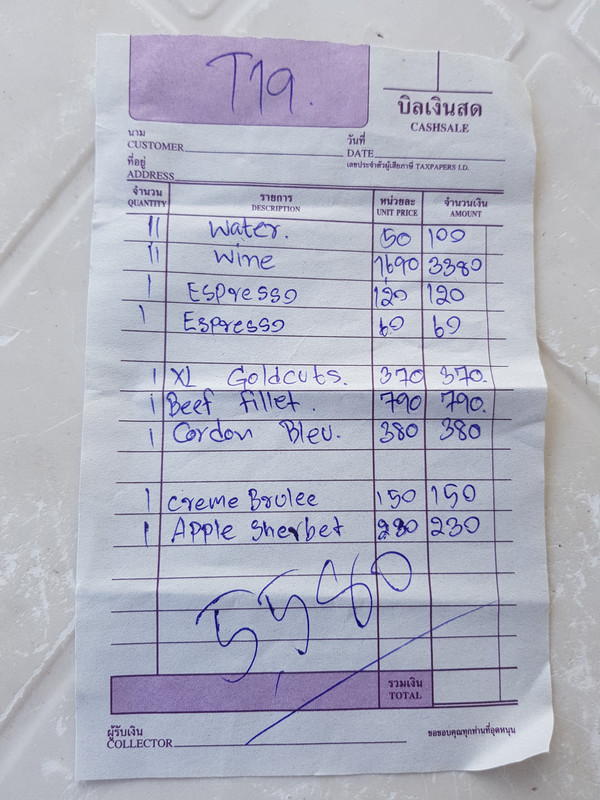 T19.
บิลเงินสด
CASHSALE
นาม
CUSTOMER
วันที่
DATE
ที่อยู่
ADDRESS
เลขประจำตัวผู้เสียภาษี TAXPAPERS I.D.
จำนวน รายการ หน่วยละ จำนวนเงิน
QUANTITY DESCRIPTION UNIT PRICE AMOUNT
11 Water. 50 100
11 Wine 1690 3380
1 Espresso 120 120
1 Espresso 60 60
1 XL Goldcuts. 370 370.
1 Beef fillet. 790 790.
1 Cordon Bleu. 380 380
1 Creme Brulee 150 150
1 Apple Sherbet 230 230
5,580
รวมเงิน
TOTAL
ผู้รับเงิน
COLLECTOR
ขอขอบคุณทุกท่านที่อุดหนุน